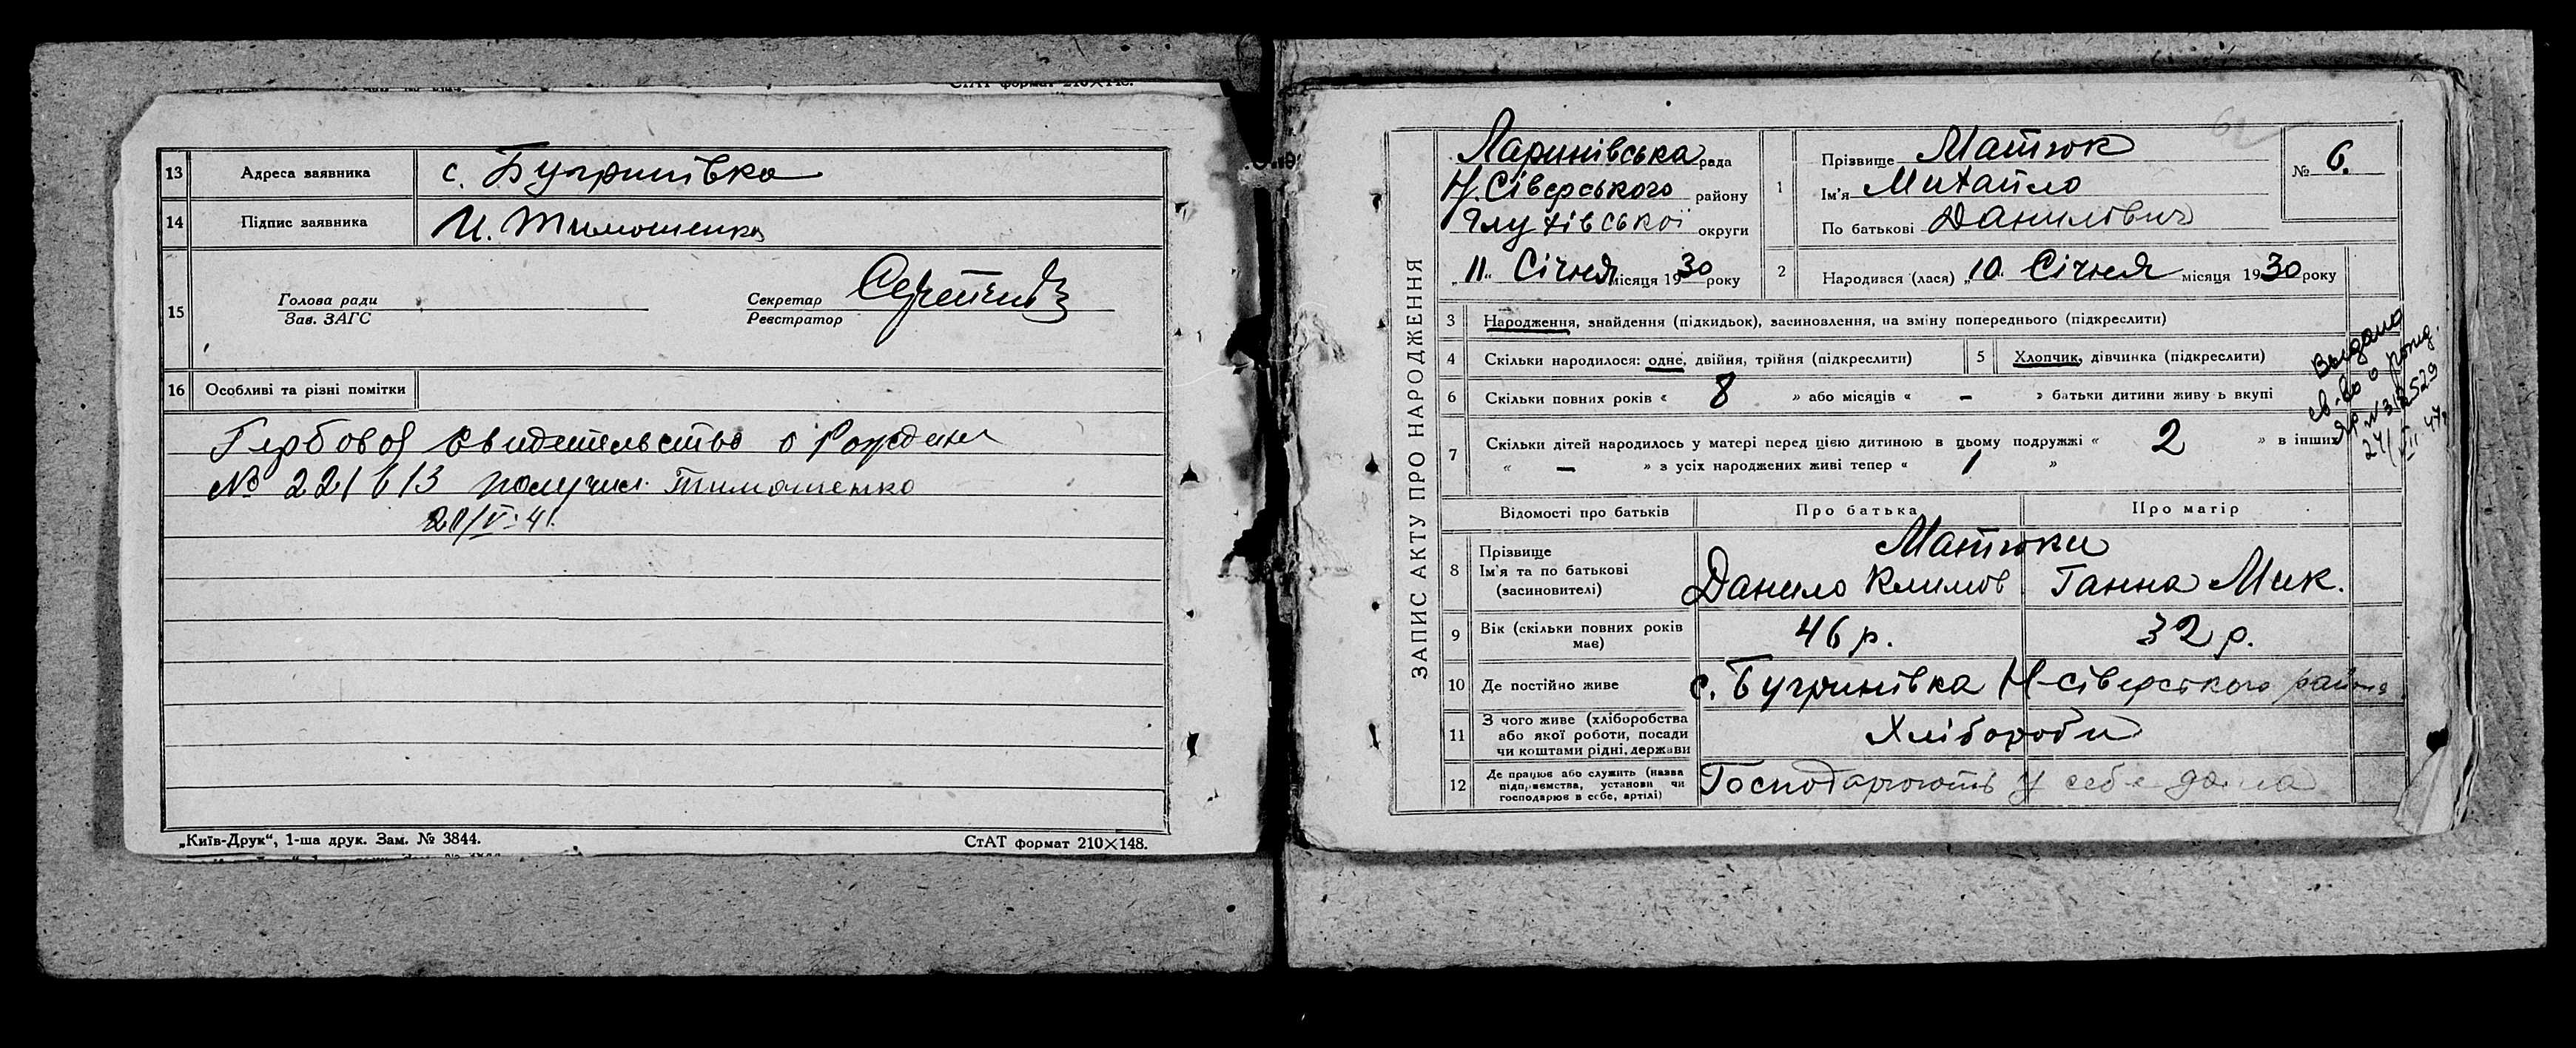 СтАТ формат 210×148.
13 Адреса заявника с. Бугринівка
14 Підпис заявника И. Тимошенко
15 Голова ради Секретар
Зав. ЗАГС Реєстратор
16 Особливі та різні помітки
Гербовое свидетельство о Рождении
№ 221613 получил Тимошенко
20/V-41.
„Київ-Друк“, 1-ша друк. Зам. № 3844. СтАТ формат 210×148.
ЗАПИС АКТУ ПРО НАРОДЖЕННЯ
Ларинівська рада
Н. Сіверського району
Глухівської округи
„11“ Січня місяця 1930 року
1 Прізвище Матюк
Ім'я Михайло
По батькові Данилович
№ 6.
2 Народився (лася) „10 Січня місяця 1930 року
3 Народження, знайдення (підкидьок), засиновлення, на зміну попереднього (підкреслити)
4 Скільки народилося: одне, двійня, трійня (підкреслити) 5 Хлопчик, дівчинка (підкреслити)
6 Скільки повних років « 8 » або місяців « – » батьки дитини живуть вкупі
7 Скільки дітей народилось у матері перед цією дитиною в цьому подружжі « 2 » в інших
« – » з усіх народжених живі тепер « 1 »
Выдано
св-во о рожд.
№ 312529
27/VII 47г
Відомості про батьків Про батька Про матір
8 Прізвище Матюки
Ім'я та по батькові Данило Климов Ганна Мик.
(засновителі)
9 Вік (скільки повних років має) 46 р. 32 р.
10 Де постійно живе с. Бугринівка Н-Сіверського района
11 З чого живе (хліборобства
або якої роботи, посади Хлібороби
чи коштами рідні, держави
12 Де працює або служить (назва
підприємства, установи чи Господарюють у себе дома
господарює в себе, артілі)